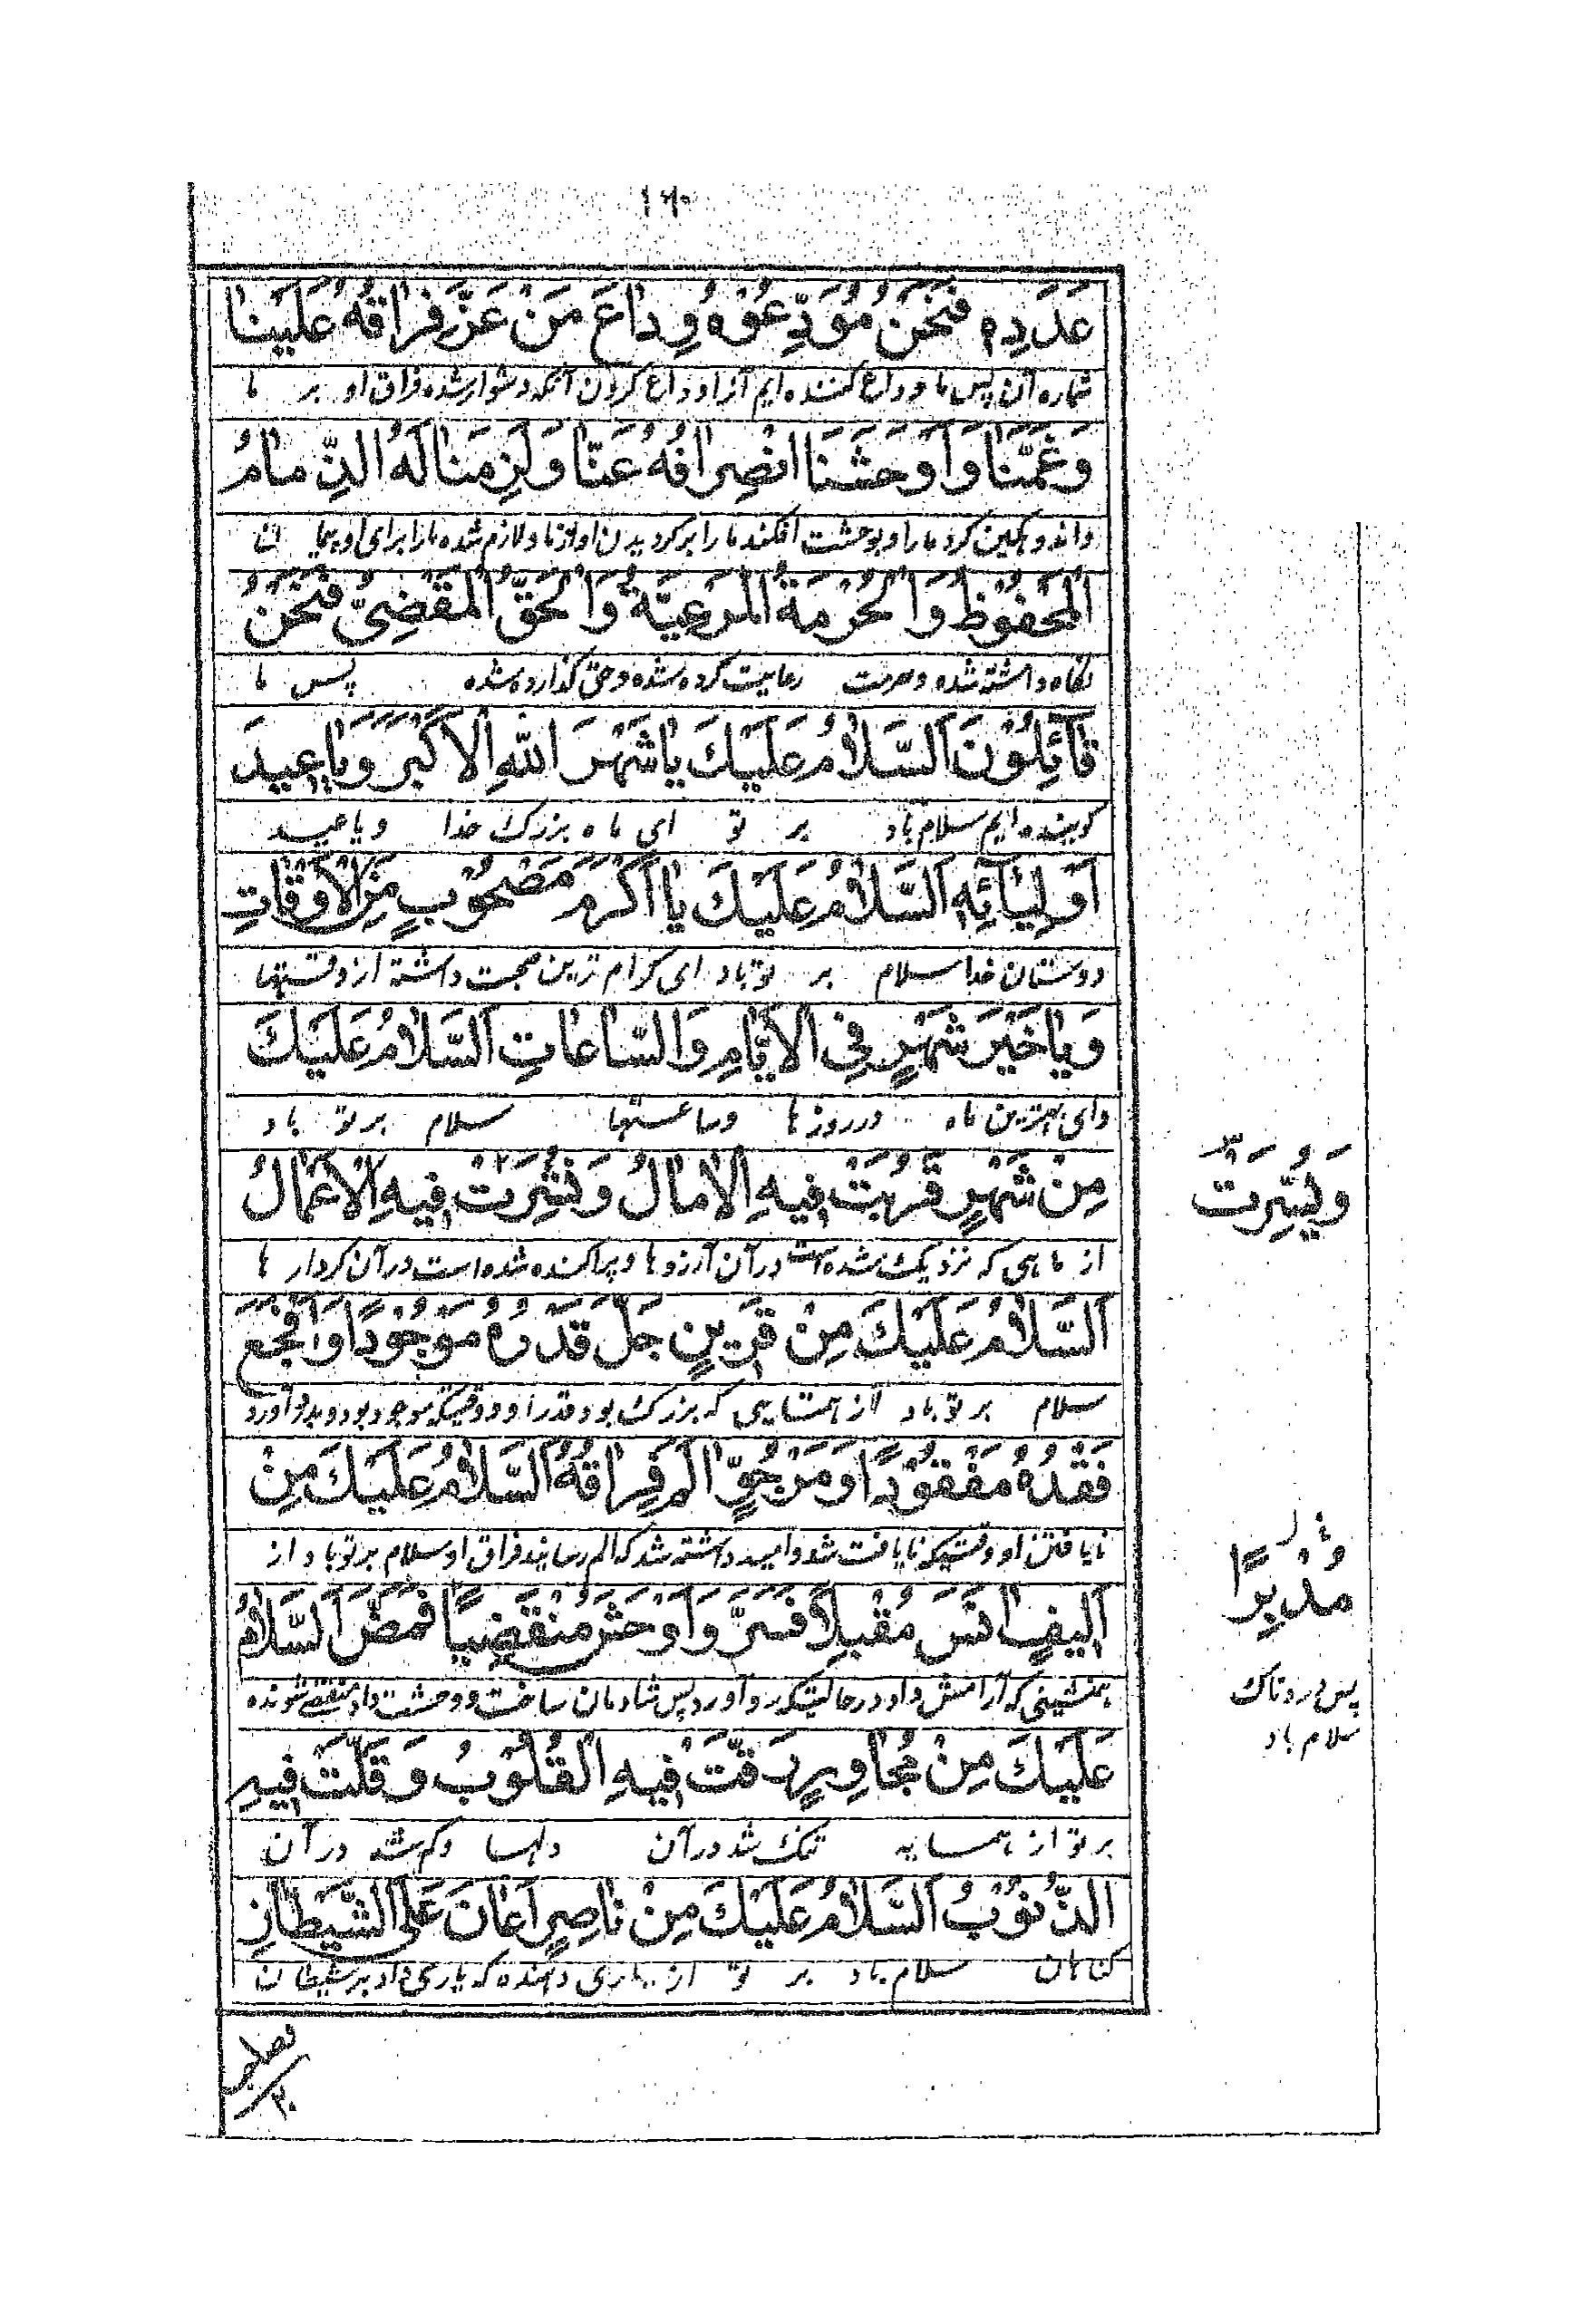 ۱۶۰
عَدَدِهِ فَنَحْنُ مُوَدِّعُوهُ وِدٰاعَ مَنْ عَزَّ فِرٰاقُهُ عَلَيْنٰا
شماره آن پس ما وداع کننده ایم آنرا وداع کردن آنکه دشوار شده فراق او بر ما
وَغَمَّنٰا وَاَوْحَشَنَا انْصِرٰافُهُ عَنّٰا وَلَزِمَنٰا لَهُ الذِّمٰامُ
واندوهکین کرد ما را و بوحشت افکند ما را برکردیدن او از ما و لازم شده ما را برای او پیمانی
الْمَحْفُوظُ وَالْحُرْمَةُ الْمَرْعِيَّةُ وَالْحَقُّ الْمَقْضِىُّ فَنَحْنُ
نگاه داشته شده وحرمت رعایت کرده شده وحق گذارده شده پس ما
قٰآئِلُوْنَ اَلسَّلٰامُ عَلَيْكَ يٰا شَهْرَ اللّٰهِ الْاَكْبَرَ وَيٰا عِيدَ
کوینده ایم سلام باد بر تو ای ماه بزرک خدا و یا عید
اَوْلِيٰآئِهِ اَلسَّلٰامُ عَلَيْكَ يٰا اَكْرَمَ مَصْحُوْبٍ مِنَ الْاَوْقٰاتِ
دوستان خدا سلام بر تو باد ای کرام ترین صحبت داشته از وقتها
وَيٰا خَيْرَ شَهْرٍ فِى الْاَيّٰامِ وَالسّٰاعٰاتِ اَلسَّلٰامُ عَلَيْكَ
وای بهترین ماه در روزها وساعتها سلام بر تو باد
مِنْ شَهْرٍ قَرُبَتْ فِيهِ الْاٰمٰالُ وَنُشِرَتْ فِيهِ الْاَعْمٰالُ
وَيُسِّرَتْ
از ماهی که نزدیک شده است در آن آرزوها و پراکنده شده است در آن کردار ها
اَلسَّلٰامُ عَلَيْكَ مِنْ قَرِينٍ جَلَّ قَدْرُهُ مَوْجُوْدًا وَاَفْجَعَ
سلام بر تو باد از همتایی که بزرک بود قدر او وقتیکه موجود بود و بدرد آورد
فَقْدُهُ مَفْقُوْدًا وَمَرْجُوٍّ اٰلَمَ فِرٰاقُهُ اَلسَّلٰامُ عَلَيْكَ مِنْ
نایافتن او وقتیکه نایافت شد وامید داشته شد که الم رسانید فراق او سلام بر تو باد از
اَلِيفٍ اٰنَسَ مُقْبِلًا فَسَرَّ وَاَوْحَشَ مُنْقَضِيًا فَمَضَّ اَلسَّلٰامُ
مُدْبِرًا
همنشینی که آرامش داد در حالتیکه رو آورد پس شادمان ساخت ووحشت داد منقضی شونده
پس دردناک
سلام باد
عَلَيْكَ مِنْ مُجٰاوِرٍ رَقَّتْ فِيهِ الْقُلُوْبُ وَقَلَّتْ فِيهِ
بر تو از همسایه تنک شد در آن دلها وکم شد در آن
الذُّنُوْبُ اَلسَّلٰامُ عَلَيْكَ مِنْ نٰاصِرٍ اَعٰانَ عَلَى الشَّيْطٰانِ
کناهان سلام باد بر تو از یاری دهنده که یاری داد بر شیطان